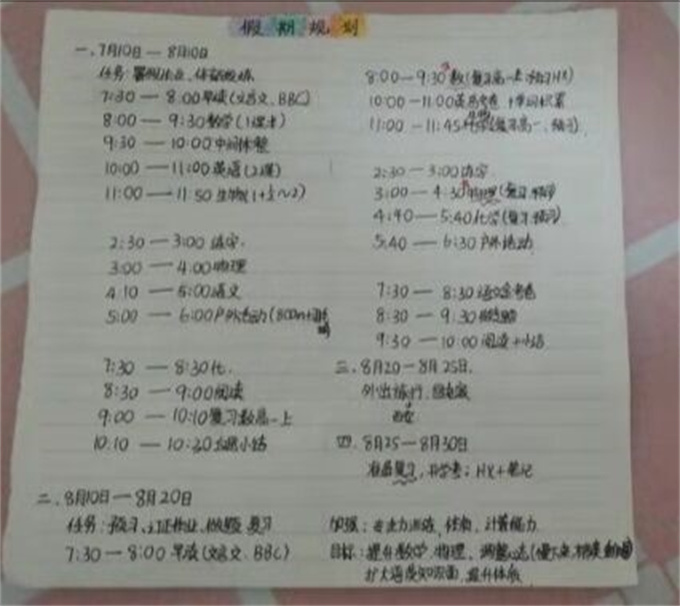 假期规划
一、7月10日—8月10日
任务：暑假作业、体育锻炼
7:30—8:00 早读(文言文、BBC)
8:00—9:30 数学(1课本)
9:30—10:00 中间休整
10:00—11:00 英语(2课)
11:00—11:50 生物(1+½~2)
2:30—3:00 练字
3:00—4:00 物理
4:10—5:00 语文
5:00—6:00 户外活动(800m+
7:30—8:30 化.
8:30—9:00 阅读
9:00—10:10 复习数高一上
10:10—10:30 小结
二、8月10日—8月20日
任务：预习、作业、做题、复习
7:30—8:00 早读(文言文、BBC)
8:00—9:30 数(复习高一
10:00—11:00 英语 +单词积累
11:00—11:45 (复习高一、预习)
2:30—3:00 练字
3:00—4:30 物理(复习、预习)
4:40—5:40 化学(复习、预习)
5:40—6:30 户外活动
7:30—8:30 语
8:30—9:30 做题
9:30—10:00 阅读+小结
三、8月20—8月25日.
外出旅行、回老家
四、8月25—8月30日
准备复习，开学考；HX+笔记
加强：专注力训练、体育、计算能力
目标：提升数学、物理、调整心态(慢下来,
扩大语文知识面，提升体育